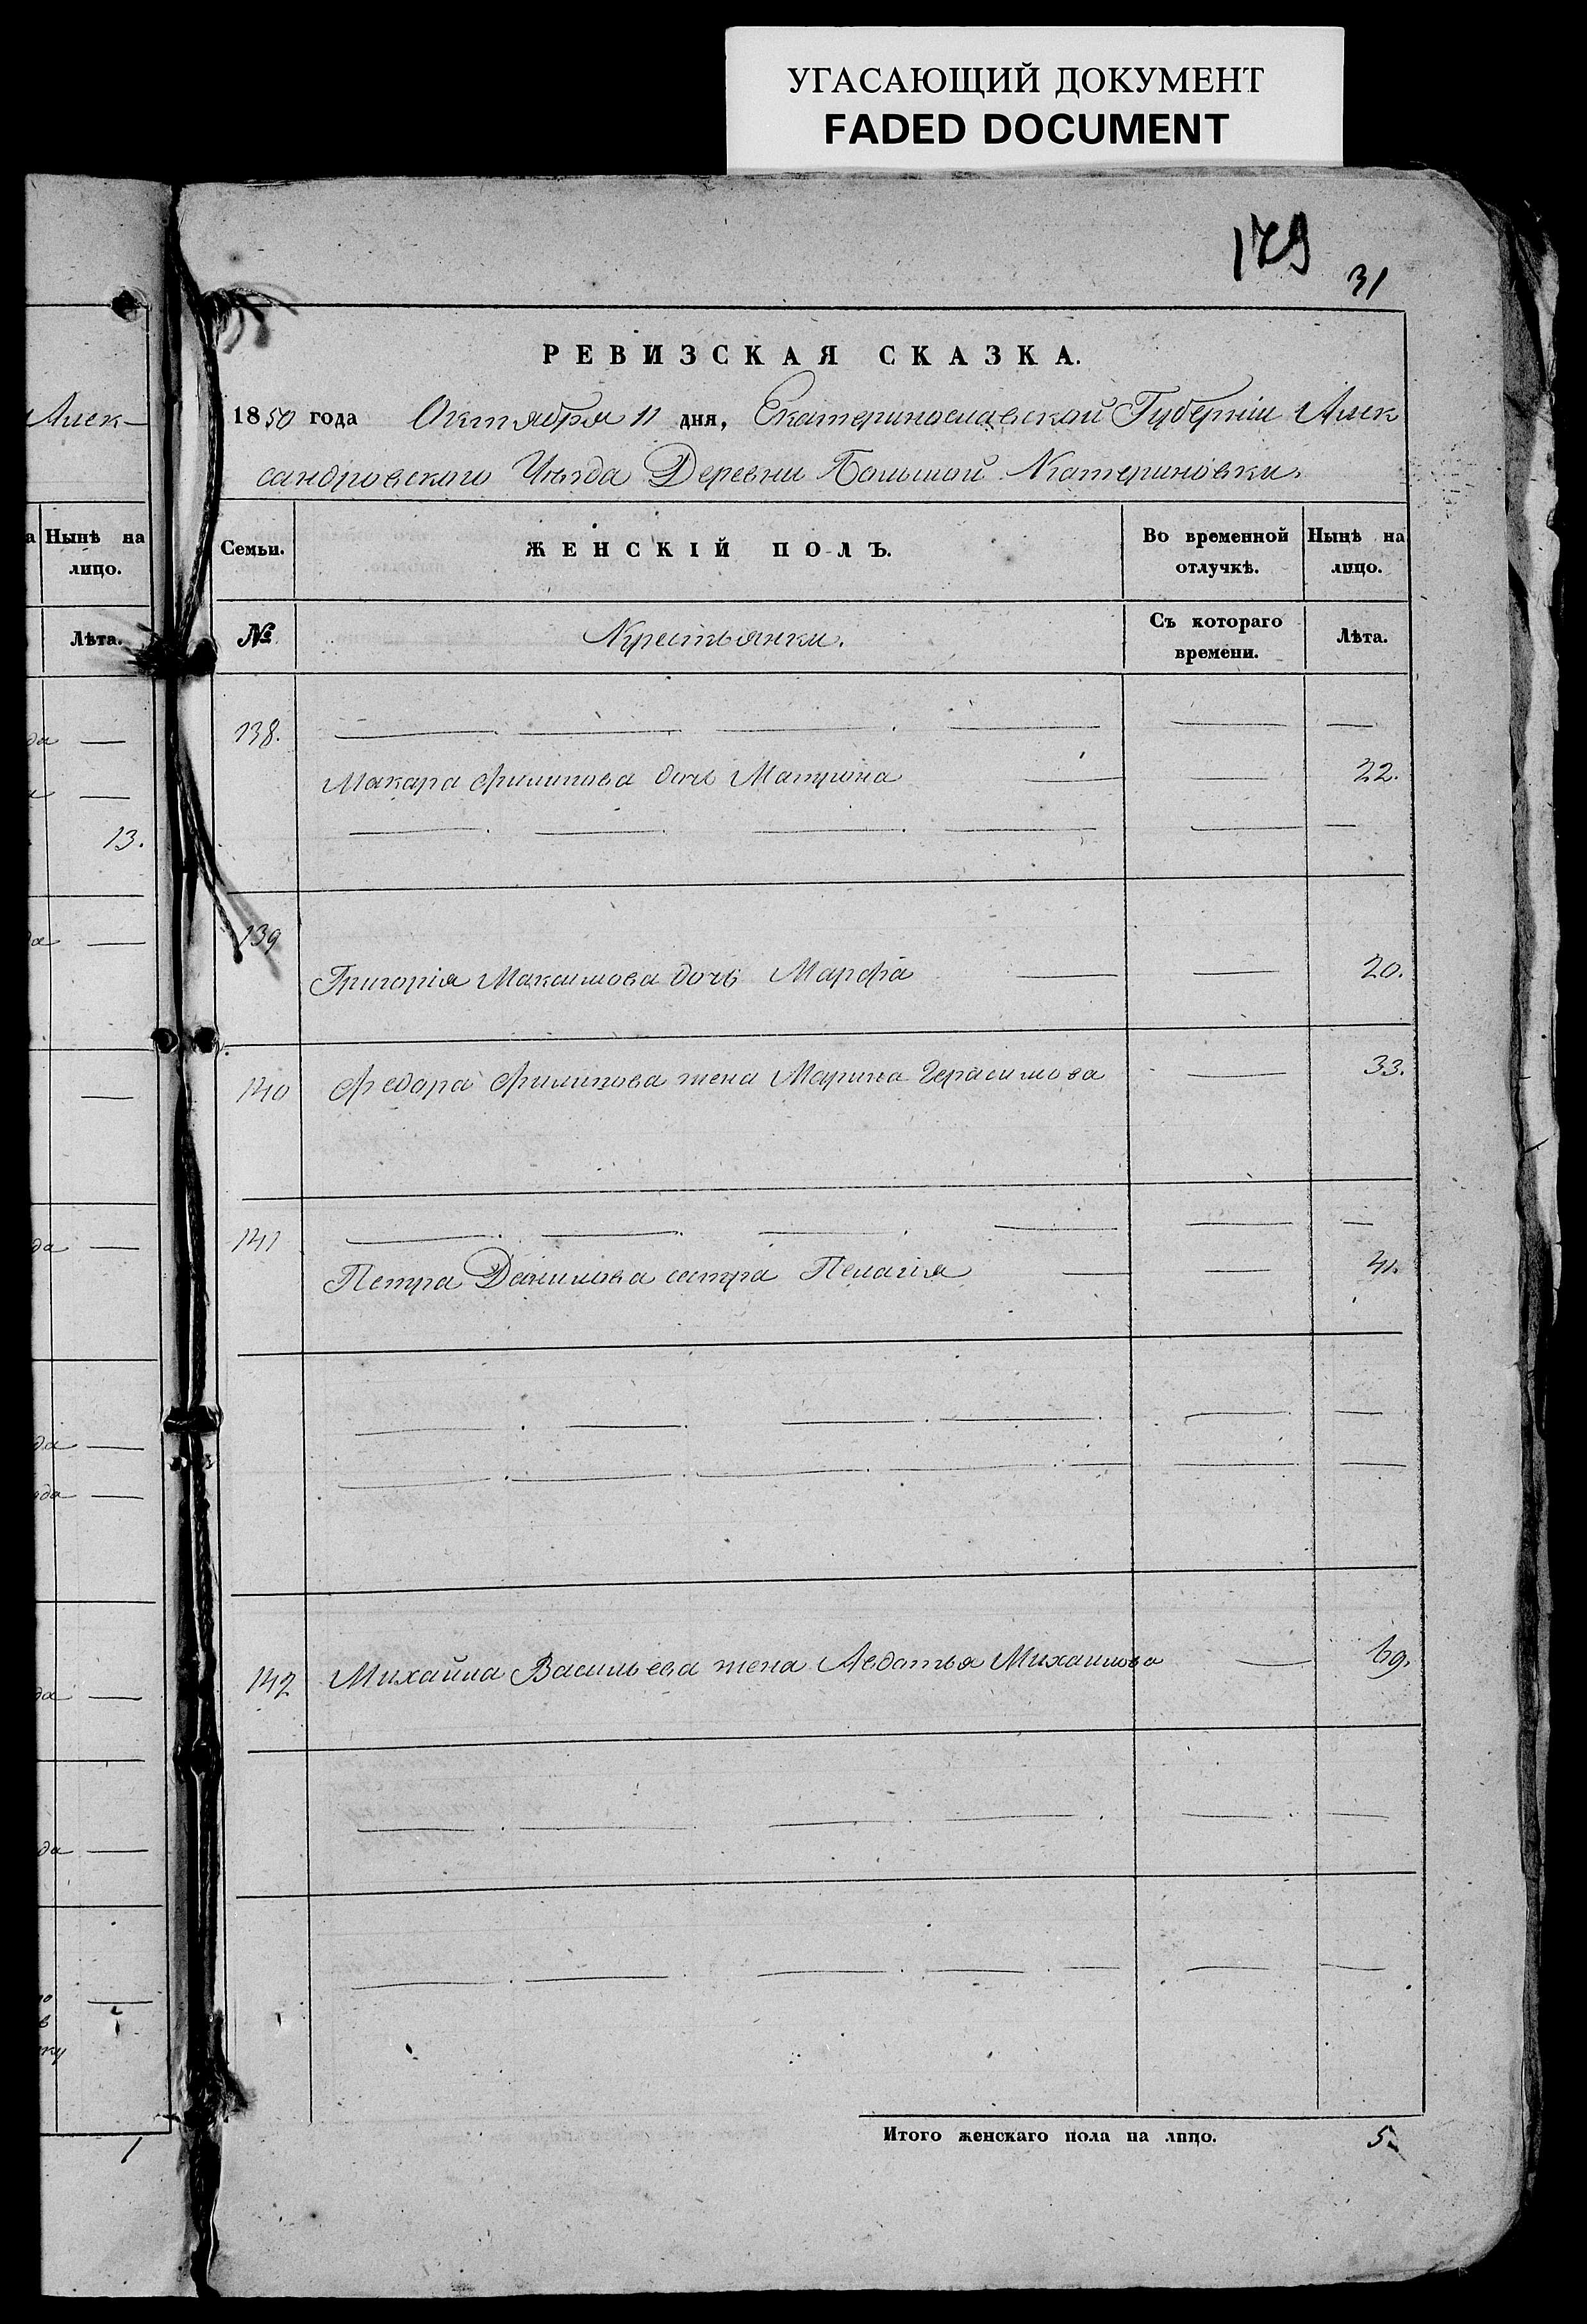 УГАСАЮЩИЙ ДОКУМЕНТ
FADED DOCUMENT
179
31
РЕВИЗСКАЯ СКАЗКА.
1850 года Октября 11 дня, Екатеринославской Губерніи Алек
сандровскаго Уѣзда Деревни Большой Катериновки.
Алек-
Нынѣ на
лицо.
Лѣта.
13.
1
Семьи.
ЖЕНСКІЙ ПОЛЪ.
Во временной
отлучкѣ.
Нынѣ на
лицо.
№
Крестьянки.
Съ котораго
времени.
Лѣта.
138.
Макара Филипова дочь Матрина 22.
139
Григорія Максимова дочь Марфа 20.
140 Федора Филипова жена Марина Герасимова 33.
141
Петра Данилова сестра Пелагія 41.
142 Михайла Васильева жена Авдотья Михаилова 69.
Итого женскаго пола на лицо. 5.